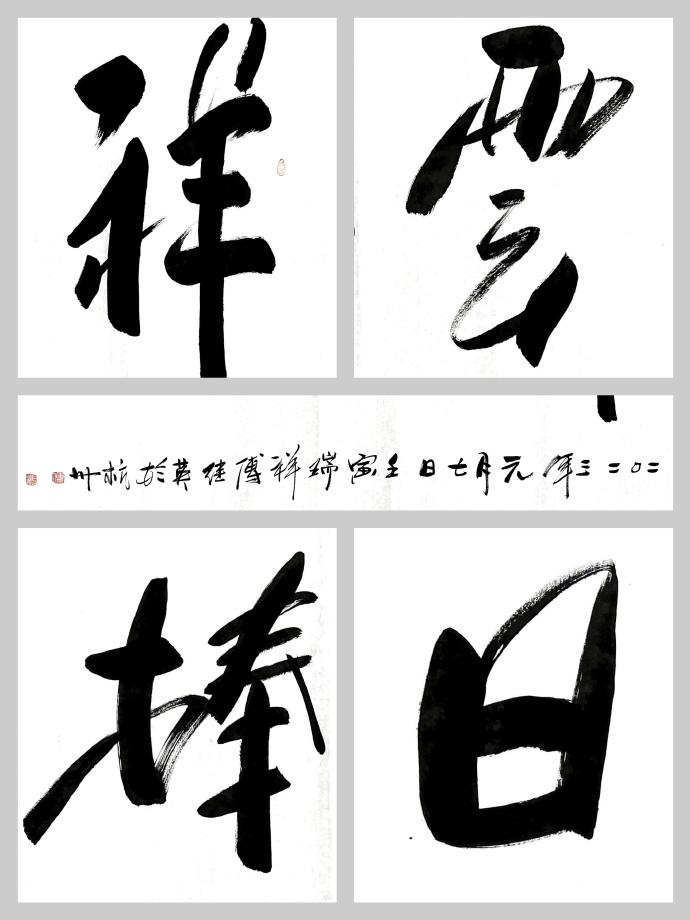 祥雲
二〇二三年元月七日壬寅瑞祥傅佳英於杭州
捧日